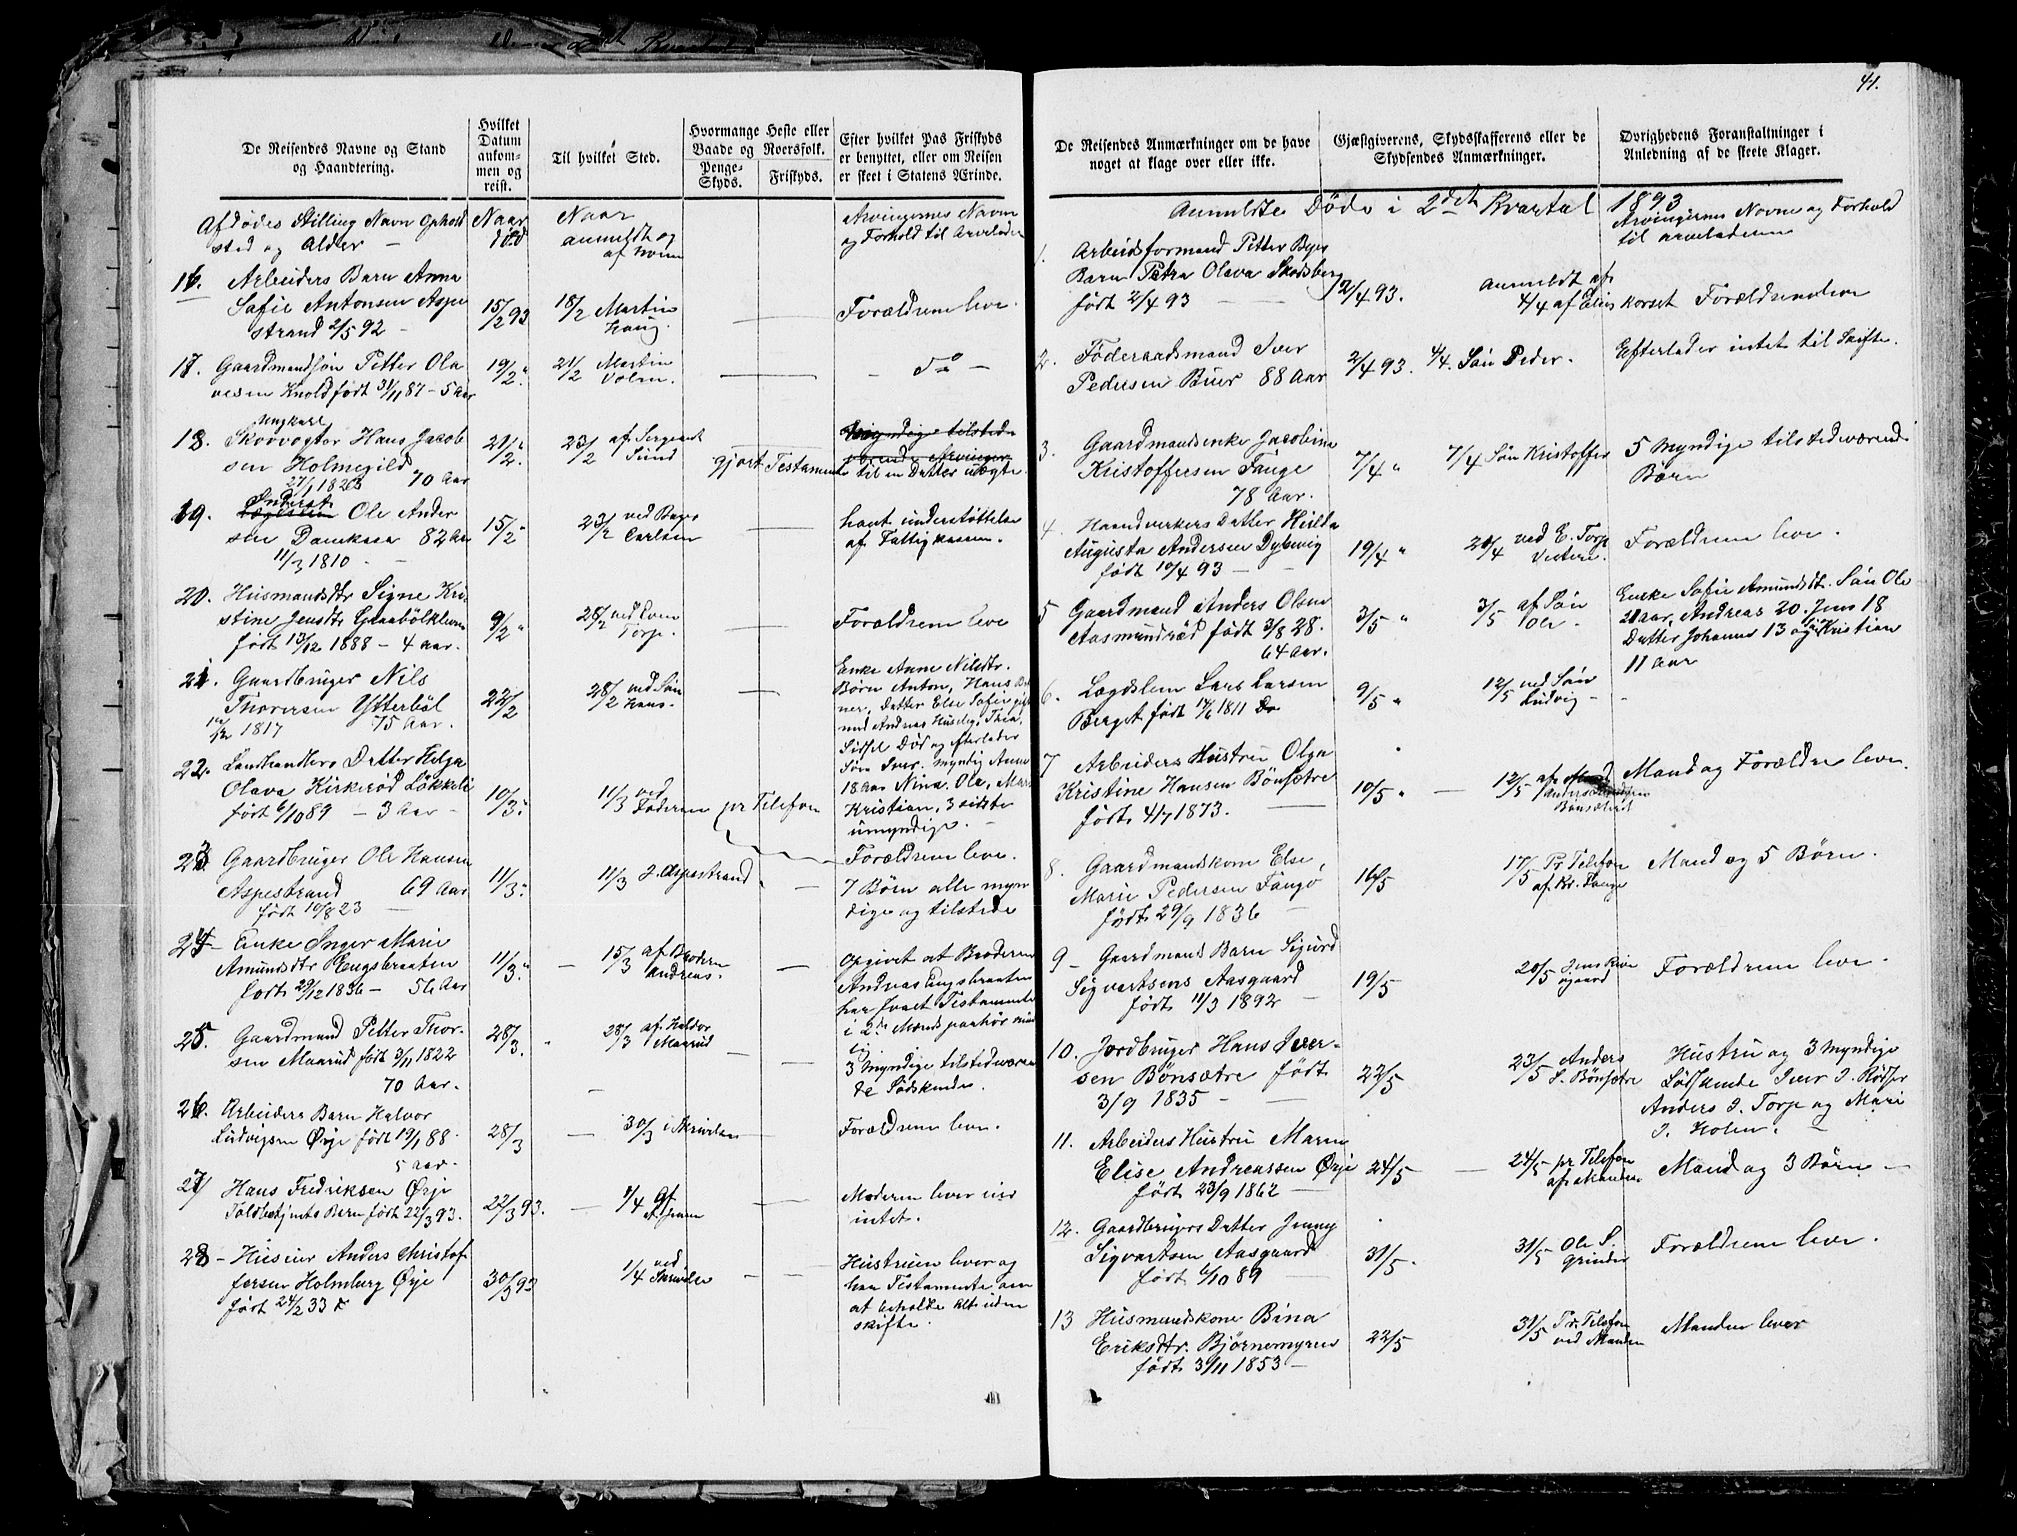 41.
De Reisendes Navne og Stand
og Haandtering.
Hvilket
Datum
ankom-
men og
reist.
Til hvilket Sted.
Hvormange Heste eller
Baade og Roersfolk.
Penge-
Skyds.
Friskyds.
Efter hvilket Pas Friskyds
er benyttet, eller om Reisen
er skeet i Statens Ærinde.
Afdødes Stilling Navn Ophold
sted og Alder —
Naar
død
Naar
anmeldt og
af hvem
Arvingernes Navn
og Forhold til Arvelader
16. Arbeiders Barn Anna
Sofie Antonsen Aspe
strand 2/5 92 —
15/2 93
18/2 Martin
Haug.
Forældrene leve.
17. Gaardmandsøn Petter Ola
vesen Knold født 31/11 87 – 5 aar
19/2 "
21/2 Martin
Volen.
– do –
Ungkarl
18. Skovvogter Hans Jacob
sen Holmegild
27/1 1823 70 Aar
21/2 "
23/2 af Sergeant
Sund
gjort Testamente
til en Datter uægte
19. Inderst
Ole Ander
sen Damkaas 82 Aar
11/3 1810
15/2 "
23/2 ved
Carlsen
havt understøttelse
af Fattigkassen.
20. Husmandsdtr Signe Kri
stine Jensdtr Graabölkleven
født 13/12 1888 – 4 aar.
9/2 "
28/2 ved Even
Torp.
Forældrene leve
21. Gaardbruger Nils
Thoresen Ytterböl
1817 75 Aar.
22/2
28/2 ved Søn
Hans.
Enke Anne Nilsdtr.
Børn Anton, Hans
ner, Datter Else Sofie gift
med Andreas
Sidsel Død og efterlader
Søn Iver. myndig Anne
18 aar Nina. Ole, Mari
Kristian, 3 sidste
umyndige.
22. Landhandlers Datter Helga
Olava Kirkerød Løkkeli
født 6/10 89 — 3 Aar —
10/3 "
11/3 ved
Faderen pr Telefon
Forældrene leve.
23 Gaardbruger Ole Hansen
Aspestrand 69 Aar
født 10/8 23
11/3 "
11/3 J. Aspestrand
7 Børn alle myn
dige og tilstede
24 – Enke Inger Marie
Amundsdtr Engsbraaten
født 29/12 1836 – 56 Aar
11/3 "
15/3 af Broderen
Andreas.
Opgivet at Broderen
Andreas Engsbraaten
har faaet Testamente
i 2de Mænds paahør
25. Gaardmand Petter Thor-
sen Maarud født 3/11 1822
70 Aar.
28/3.
28/3 af Haldor
Maarud
3 myndige tilstedværen
de Sødskende.
26. Arbeiders Barn Halvor
Ludvigsen Ørje født 19/1 88
5 Aar.
28/3
30/3 i Skrivelse
Forældrene leve.
27 Hans Fredriksen Ørje
Toldbetjents Barn født 22/3 93.
22/3 93.
1/4 af
Moderen lever eier
intet.
28 – Huseier Anders Christof
fersen Holmberg Ørje
født 24/2 33
30/3 93
1/4 ved
Skrivelse
Hustruen lever og
har Testamente om
at beholde Alt uden
skifte.
De Reisendes Anmærkninger om de have
noget at klage over eller ikke.
Gjæstgiverens, Skydsskafferens eller de
Skydsendes Anmærkninger.
Øvrighedens Foranstaltninger i
Anledning af de skeete Klager.
Anmeldte Døde i 2det Kvartal 1893
Arvingernes Navne og Forhold
til arveladeren
1. Arbeidsformand Petter Byes
Barn Petra Olava Skodsberg
født 2/4 93
2/4 93.
Anmeldt af
4/4 af Elias Korset
Forældrene leve
2. Föderaadsmand Iver
Pedersen Buer 88 Aar
2/4 93.
4/4. Søn Peder.
Efterlader intet til Skifte.
3. Gaardmandsenke Jacobine
Kristoffersen Fange
78 Aar.
7/4 "
7/4 Søn Kristoffer
5 Myndige tilstedeværende
Børn
4. Haandverkers Datter Hilda
Augusta Andersen Dybevig
født 10/4 93 —
19/4 "
20/4 ved E. Torp
Vestere.
Forældrene leve.
5 Gaardmand Anders Olsen
Aasmundrød født 3/8 28.
64 Aar.
3/5 "
3/5 af Søn
Ole.
Enke Sofie Amundsdt. Søn Ole
21 aar, Andreas 20. Jens 18
Datter Johanne 13 og Søn Kristian
11 Aar
6. Lægdslem Lars Larsen
Berget født 1811
9/5 "
12/5 ved Søn
Ludvig –
7 Arbeiders Hustru Olga
Kristine Hansen Bönsætre
født 4/7 1873.
10/5 "
12/5 af
Bönsætret
Mand og Forældre leve.
8. Gaardmandskone Else
Marie Pedersen Fange
født 29/9 1836
16/5
17/5 Pr. Telefon
af Kr. Fange
Mand og 5 Börn.
9 – Gaardmands Barn Sigurd
Sigvartsens Aasgaard
født 11/3 1892
19/5
20/5
Forældrene leve.
10. Jordbruger Hans Iver-
sen Bönsætre født
3/9 1835 —
22/5
23/5 Anders
I. Bönsætre
Hustru og 3 Myndige
Sødskende Iver I. Rødser
Anders I. Torp og Mari
I. Holen.
11. Arbeiders Hustru Maren
Elise Andreassen Ørje
født 23/9 1862 —
24/5
24/5 pr Telefon
af Manden
Mand og 3 Børn —
12. Gaardbrugers Datter Jenny
Sigvartsen Aasgaard
født 6/10 89
31/5.
31/5 Ole S.
Grinder
Forældrene leve.
13 Husmandskone Bina
Eriksdtr. Bjørnemyren
født 3/11 1853 —
22/5
31/5 Pr. Telefon
ved Manden
Manden lever